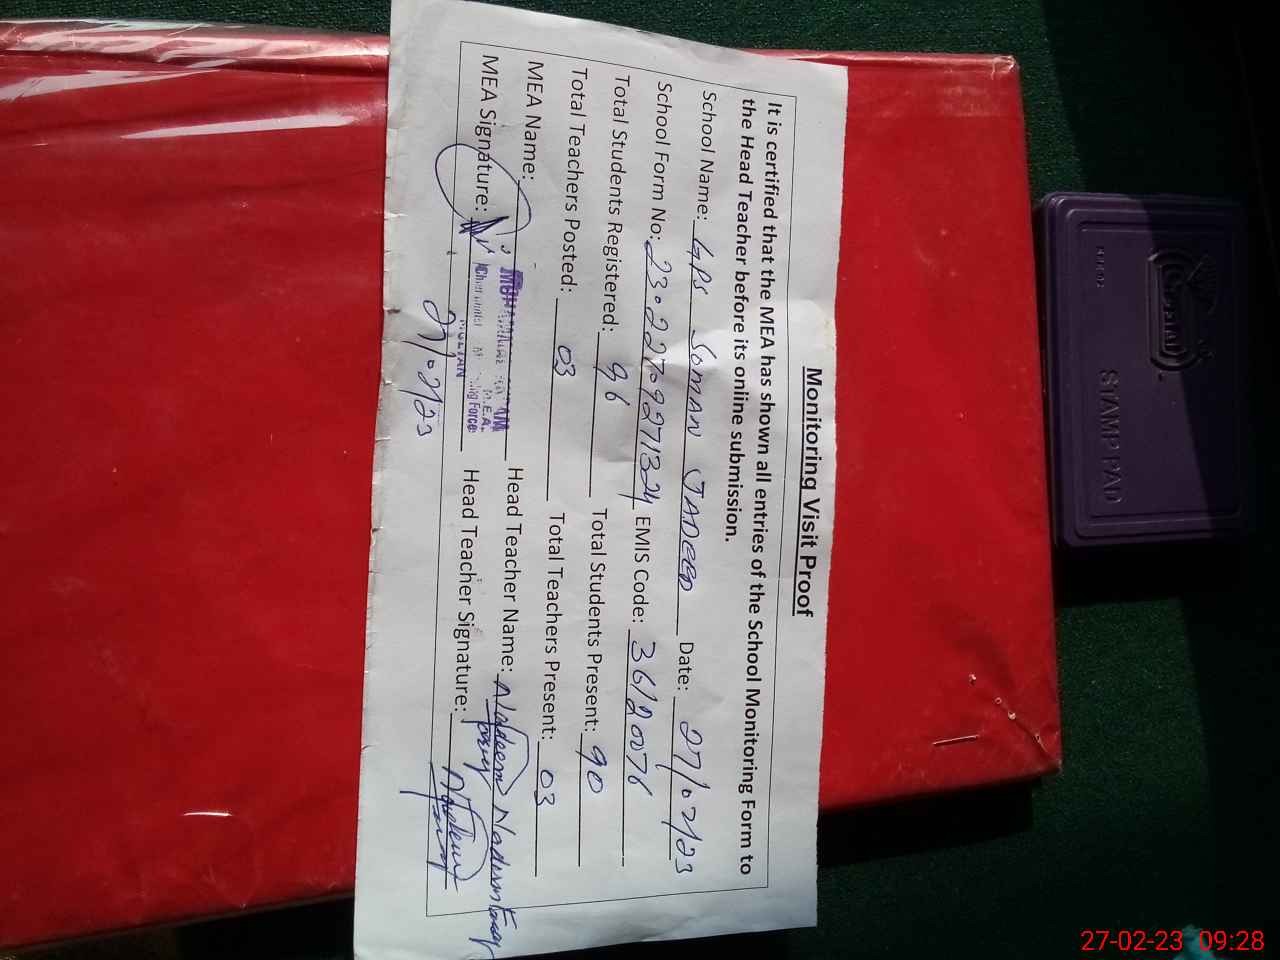 Monitoring Visit Proof
It is certified that the MEA has shown all entries of the School Monitoring Form to
the Head Teacher before its online submission.
School Name: GPS SOMAN JADEED Date: 27/02/23
School Form No: EMIS Code: 36120076
Total Students Registered: 96 Total Students Present: 90
Total Teachers Posted: 03 Total Teachers Present: 03
MEA Name: Head Teacher Name: Nadeem
MEA Signature: Head Teacher Signature:
M.E.A.
MULTAN
27/02/23
STAMP PAD
27-02-23 09:28